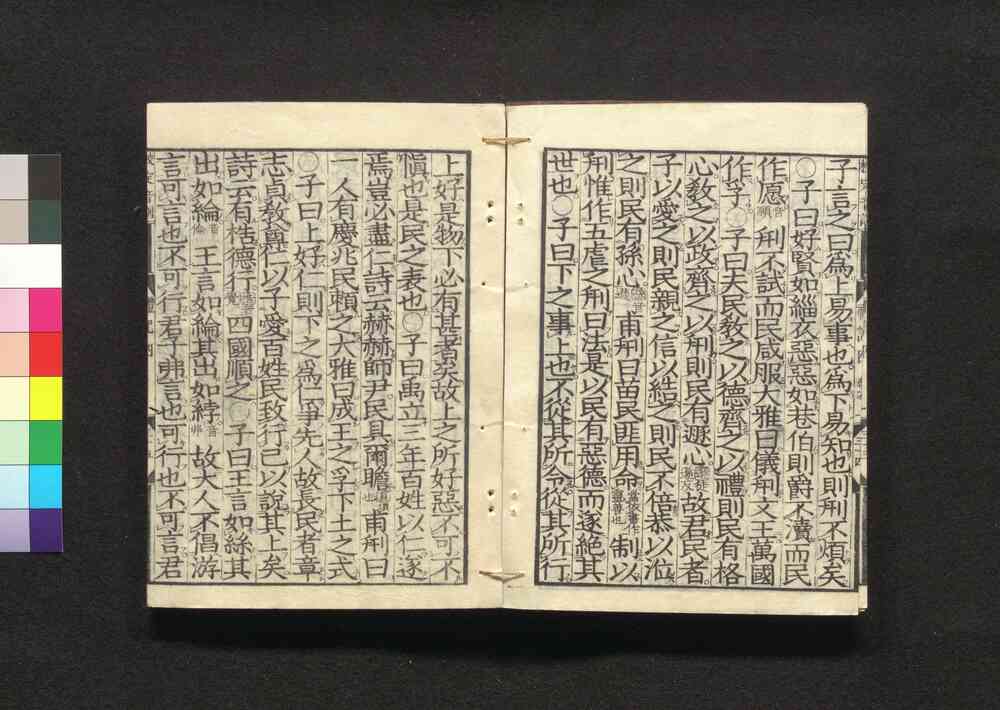 子言之曰為上易事也為下易知也則刑不煩矣
○子曰好賢如緇衣惡惡如巷伯則爵不瀆而民
作愿音願刑不試而民咸服大雅曰儀刑文王萬國
作孚○子曰夫民教之以德齊之以禮則民有格
心教之以政齊之以刑則民有遯心故君民者
子以愛之則民親之信以結之則民不倍恭以涖
之則民有孫心甫刑曰苗民匪用命制以
刑惟作五虐之刑曰法是以民有惡德而遂絕其
世也○子曰下之事上也不從其所令從其所行
上好是物下必有甚者矣故上之所好惡不可不
慎也是民之表也○子曰禹立三年百姓以仁遂
焉豈必盡仁詩云赫赫師尹民具爾瞻甫刑曰
一人有慶兆民賴之大雅曰成王之孚下土之式
○子曰上好仁則下之為仁爭先人故長民者章
志貞教尊仁以子愛百姓民致行己以說其上矣
詩云有梏德行四國順之○子曰王言如絲其
出如綸王言如綸其出如綍故大人不倡游
言可言也不可行君子弗言也可行也不可言君